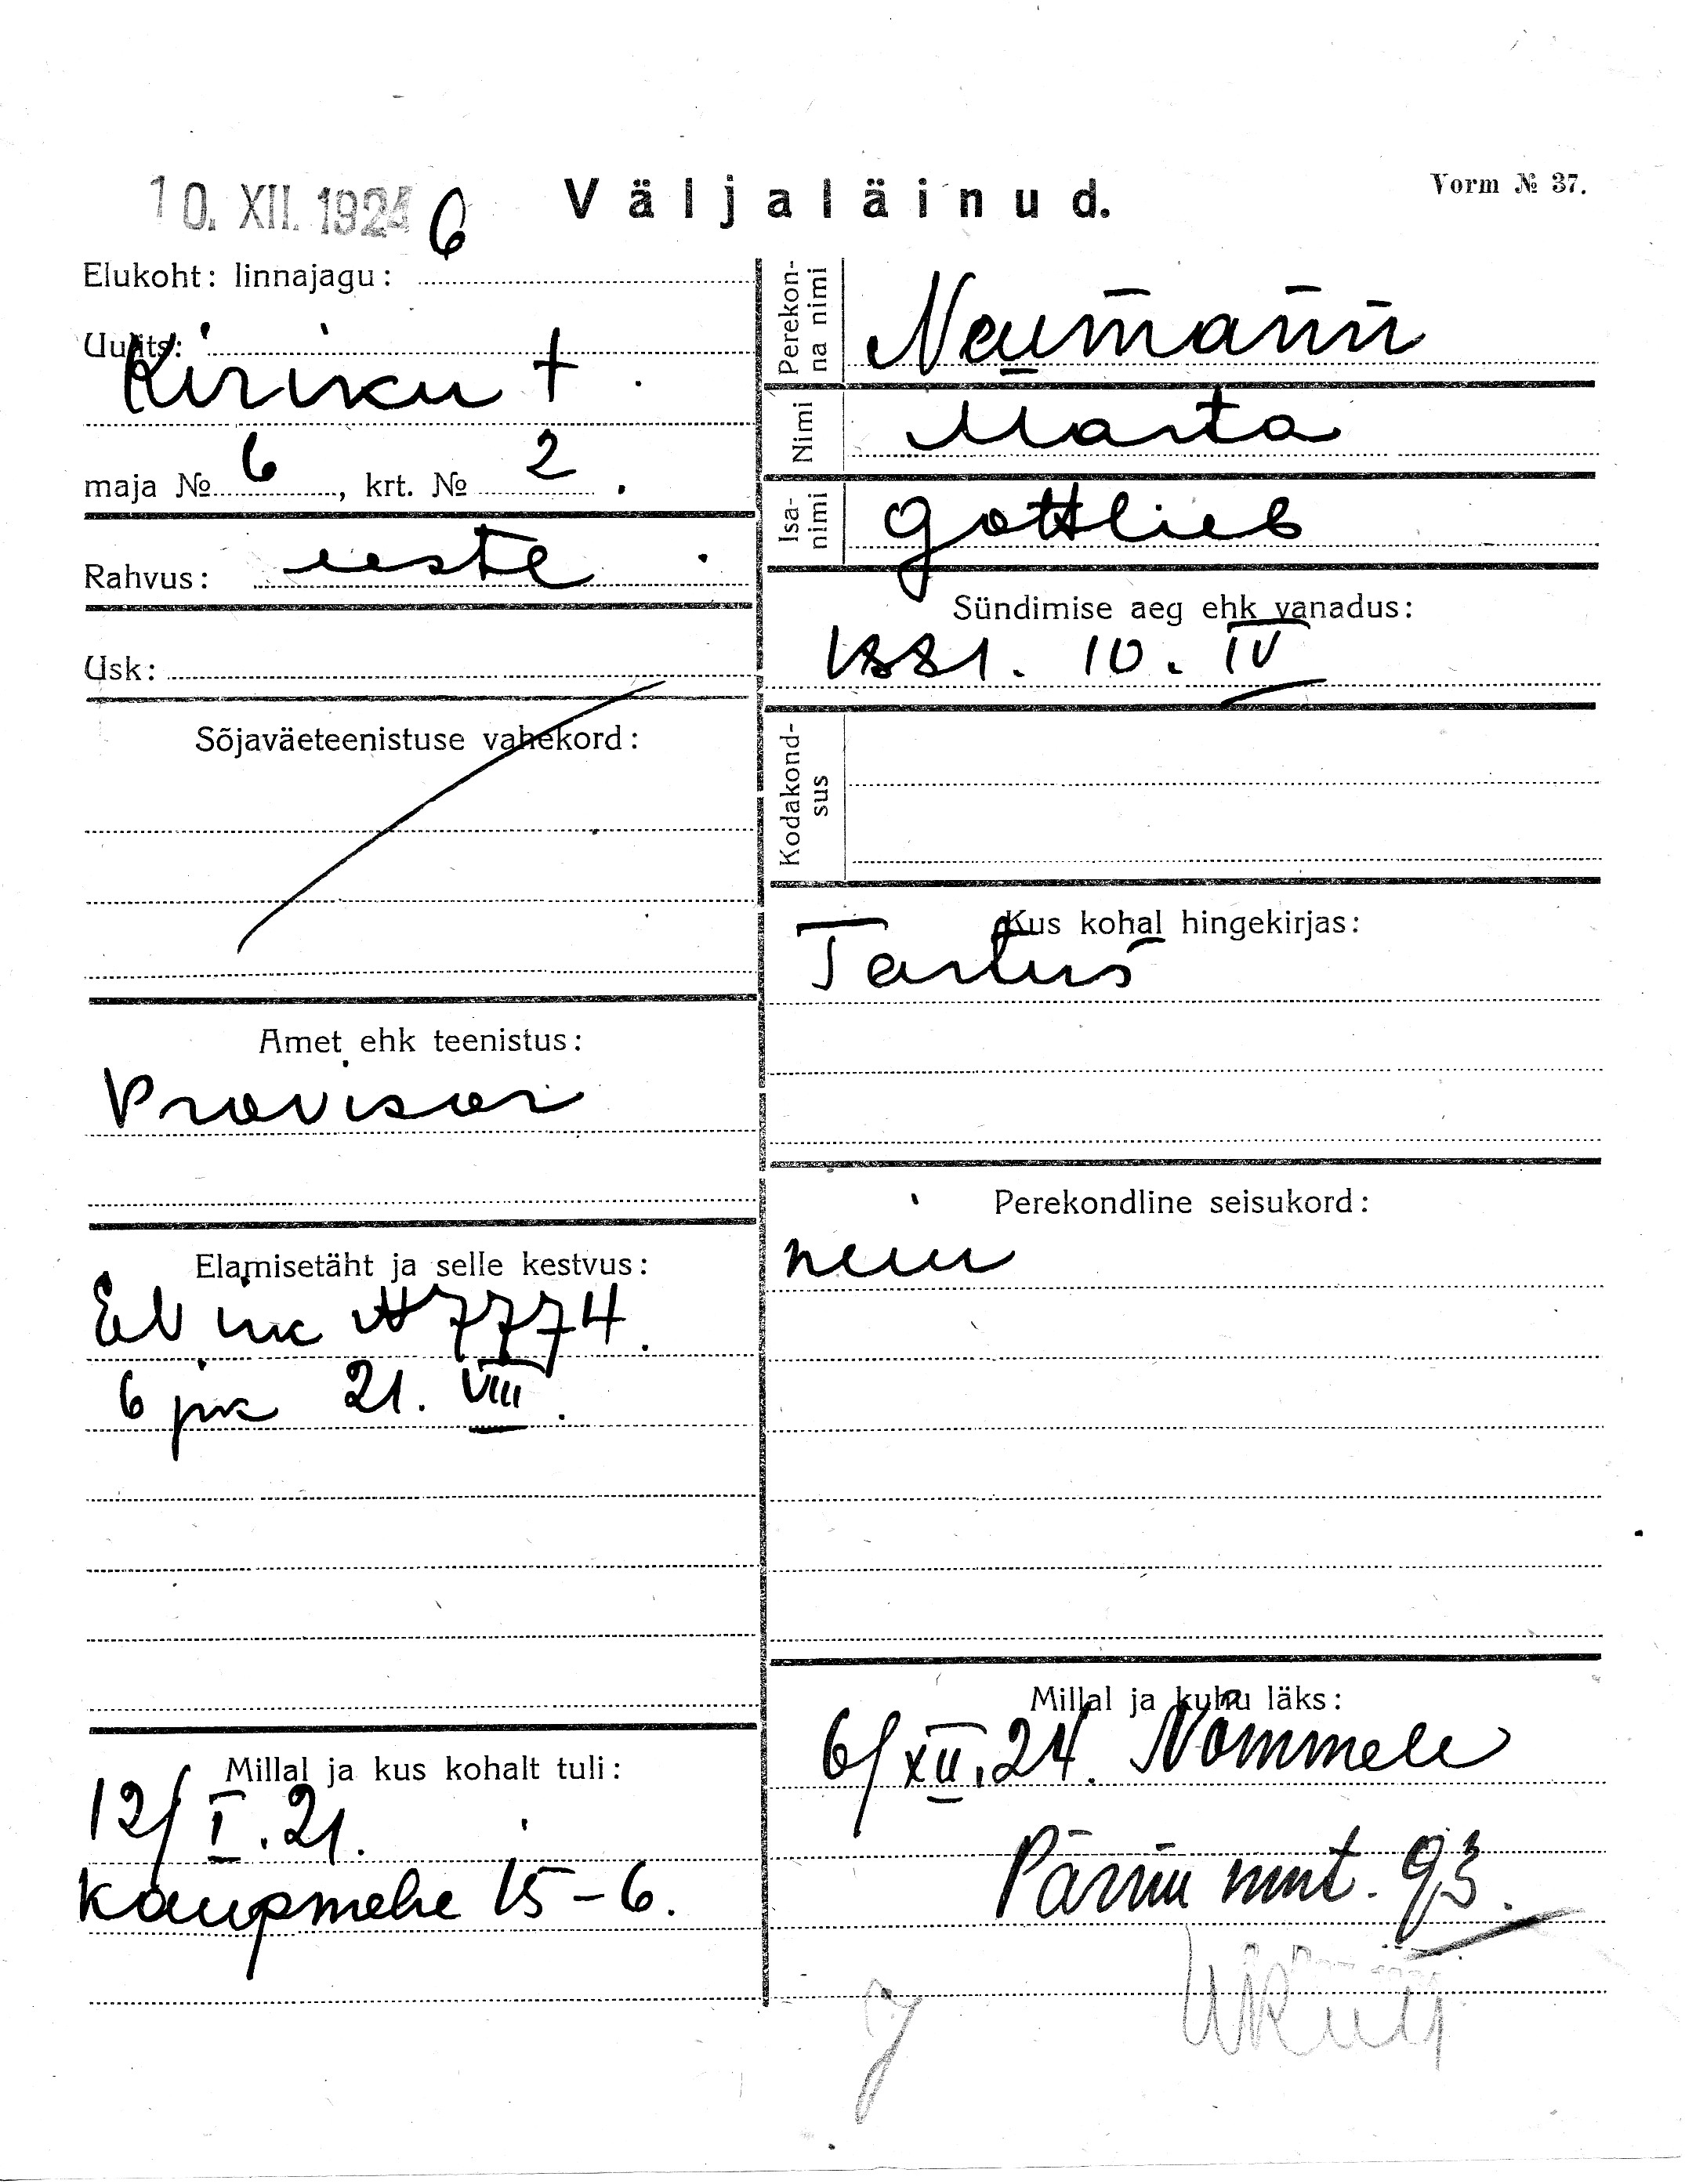 10. XII. 1924 6
Väljaläinud.
Vorm № 37.
Elukoht: linnajagu:
Uulits:
Kiriku t.
maja № 6, krt. № 2.
Rahvus: eeste
Usk:
Sõjaväeteenistuse vahekord:
Amet ehk teenistus:
Provisor
Elamisetäht ja selle kestvus:
7774.
6 jsk 21. VIII.
Millal ja kus kohalt tuli:
12/I. 21.
Kaupmehe 15-6.
Perekonna nimi
Neumann
Nimi
Marta
Isanimi
Gottlieb
Sündimise aeg ehk vanadus:
1881. 10. IV
Kodakondsus
Kus kohal hingekirjas:
Tartus
Perekondline seisukord:
neiu
Millal ja kuhu läks:
6/XII.24. Nõmmele
Pärnu mnt. 93.